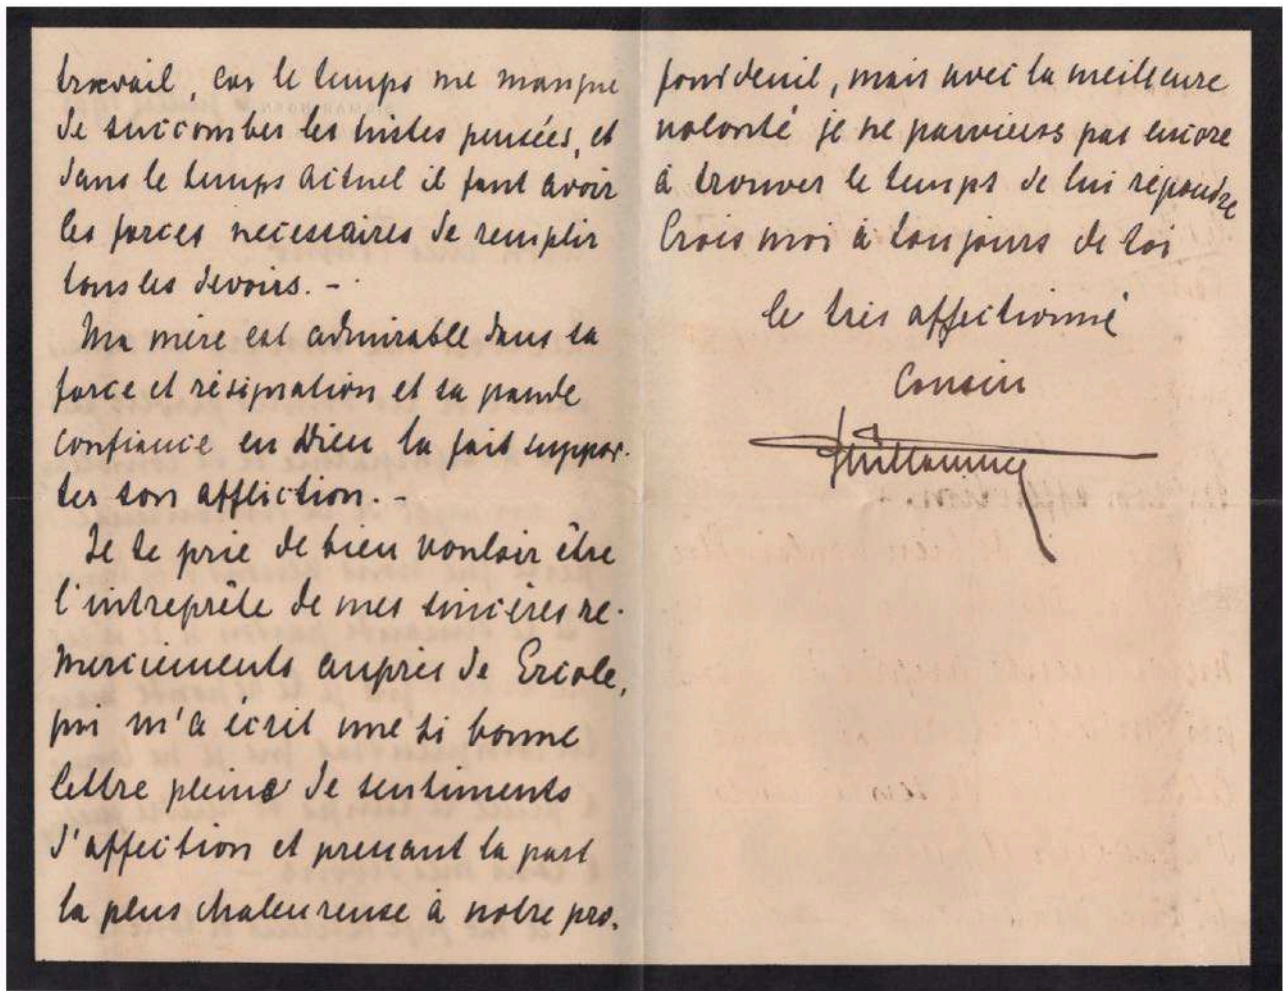 travail, car le temps me manque
de succomber les tristes pensées, et
dans le temps actuel il faut avoir
les forces nécessaires de remplir
tous les devoirs. -
Ma mère est admirable dans sa
force et résignation et sa grande
confiance en Dieu la fait suppor-
ter son affliction. -
Je te prie de bien vouloir être
l'intreprête de mes sincères re-
merciements auprès de Ercole,
qui m'a écrit une si bonne
lettre pleine de sentiments
d'affection et prenant la part
la plus chaleureuse à notre pro-
fond deuil, mais avec la meilleure
volonté je ne parviens pas encore
à trouver le temps de lui répondre
Crois moi à toujours de toi
le très affectionné
Cousin
Guillaume